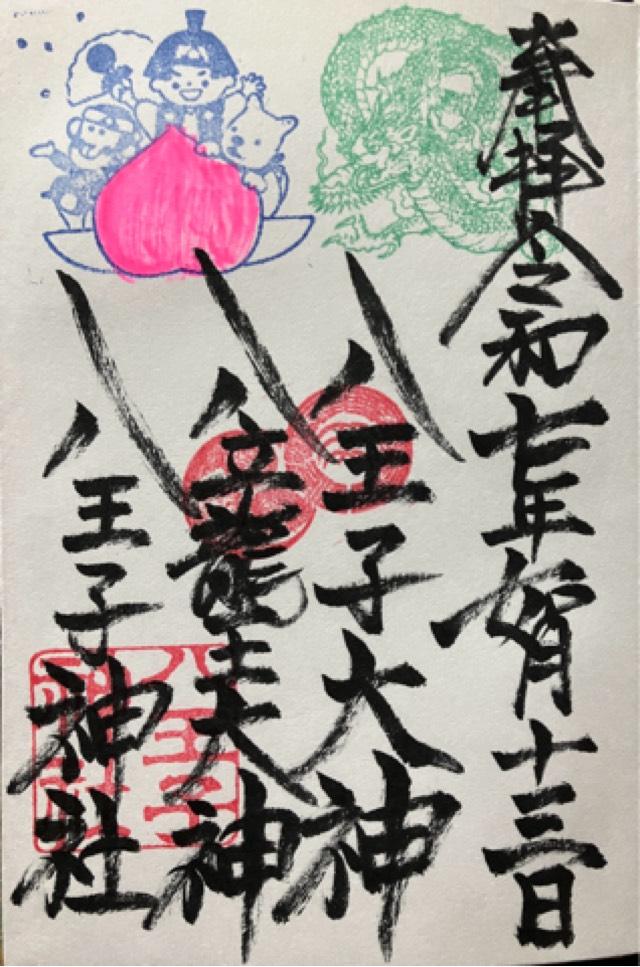 奉拝 令和七年 如月 十三日
八王子大神
八龍王大神
八王子神社
八王子
神社